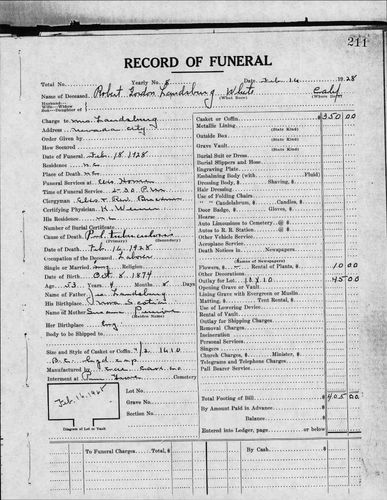 211
RECORD OF FUNERAL
Total No. Yearly No. 8 Date Feb. 16 1928
Name of Deceased Robert Gordon Landsburg White Calif
Husband— Wife—Widow Son—Daughter of (What Race) (Where Born)
Charge to Mrs. Landsburg
Address Nevada City
Order Given by
How Secured
Date of Funeral Feb. 18 1928
Residence N.C.
Place of Death N.C.
Funeral Services at Home
Time of Funeral Service 2:30 P.M.
Clergyman Rev.
Certifying Physician H.
His Residence N.C.
Number of Burial Certificate
Cause of Death Tuberculosis
(Primary) (Secondary)
Date of Death Feb. 16 1928
Occupation of the Deceased Laborer
Single or Married Religion
Date of Birth Oct. 8 1874
Age 53 Years 4 Months 8 Days
Name of Father Landsburg
His Birthplace Nova Scotia
Name of Mother Susana
(Maiden Name)
Her Birthplace Eng
Body to be Shipped to
Size and Style of Casket or Coffin
Manufactured by
Interment at Pine Grove Cemetery
Lot No.
Grave No.
Section No.
Feb. 16, 1928
Diagram of Lot or Vault
Casket or Coffin $350 00
Metallic Lining
(State Kind)
Outside Box
(State Kind)
Grave Vault
(State Kind)
Burial Suit or Dress
Burial Slippers and Hose
Engraving Plate
Embalming Body (with Fluid)
Dressing Body, $ Shaving, $
Hair Dressing
Use of Folding Chairs
" " Candelabrum, $ Candles, $
Door Badge, $ Gloves, $
Hearse
Auto Limousines to Cemetery @ $
Autos to R. R. Station @ $
Other Vehicle Service
Aeroplane Service
Death Notices in Newspapers
(Names of Newspapers)
Flowers, $ Rental of Plants, $ 10 00
Other Decorations
Outlay for Lot 18 x 10 45 00
Opening Grave or Vault
Lining Grave with Evergreen or Muslin
Matting, $ Tent Rental, $
Use of Lowering Device
Rental of Vault
Outlay for Shipping Charges
Removal Charges
Incineration
Personal Services
Singers
Church Charges, $ Minister, $
Telegrams and Telephone Charges
Pall Bearer Service
Total Footing of Bill $405 00
By Amount Paid in Advance
Balance
Entered into Ledger, page or below
To Funeral Charges, Total $ By Cash $